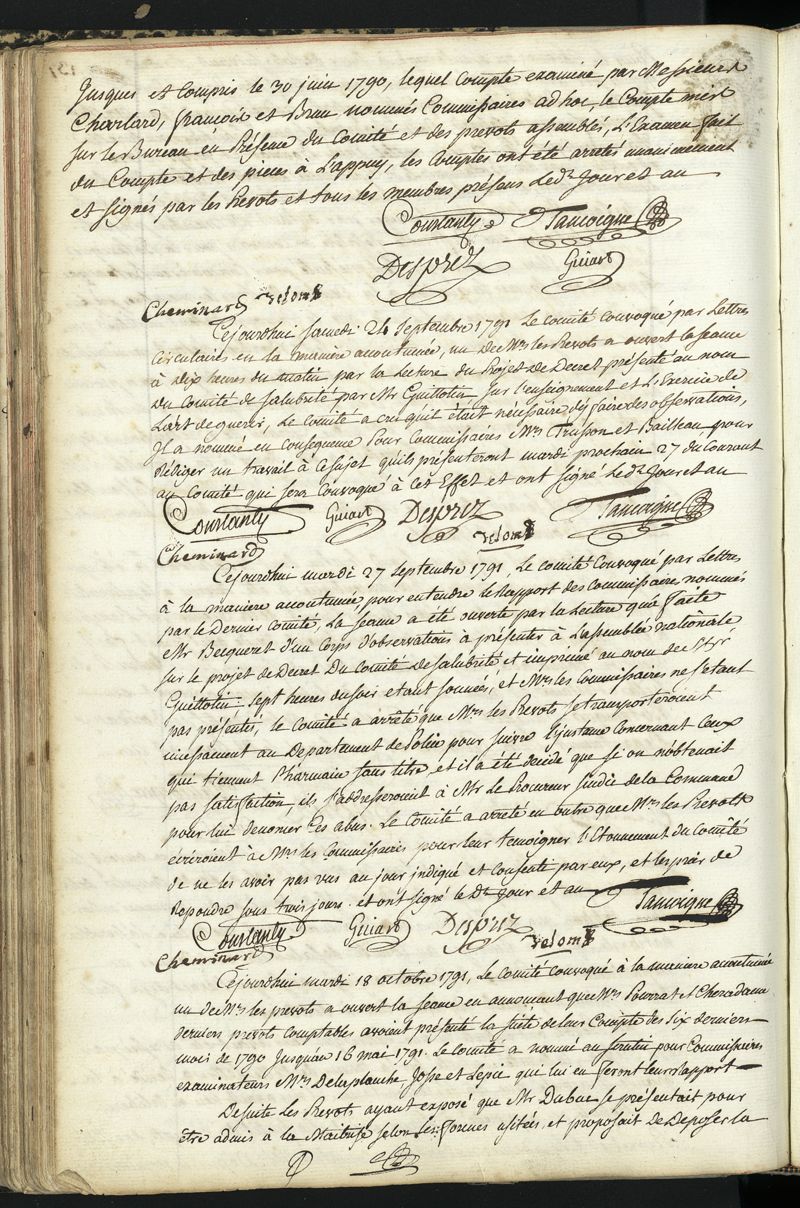 Jusques et Compris le 30 juin 1790, lequel Compte examiné par Messieurs
Charlard, françois et Brun nommés Commissaires ad hoc, le Compte mis
sur le Bureau en Présence du Comité et des prevots assemblés, L'Examen fait
du Compte et des pieces à L'appuy, les Comptes ont été arretés unanimement
et signés par les Prevots et tous les membres présens Le dt Jour et an
Coustanty Tancoigne
Desprez Guiart
Cheminard
Cejourdhui Samedi 24 Septembre 1791 Le Comité Convoqué par Lettres
Circulaires en la maniere accoutumée, un de Mrs les Prevots a ouvert la seance
à Dix heures du matin par la Lecture du Projet de Decret présenté au nom
Du Comité de Salubrité par Mr Guittotin sur l'enseignement et L'Exercice de
L'art de guerir, Le Comité a cru qu'il était nécessaire d'y faire des observations,
Il a nommé en Consequence Pour Commissaires Mrs Trusson et Bailleau pour
Rédiger un travail à ce sujet qu'ils présenteront mardi prochain 27 du Courant
au Comité qui sera Convoqué à cet Effet et ont signé Le dt Jour et an
Coustanty Guiart Desprez Tancoigne
Cheminard
Cejourdhui mardi 27 Septembre 1791, Le Comité Convoqué par Lettres
à la maniere accoutumée, pour entendre le Rapport des Commissaires nommés
par le Dernier Comité, La Seance a été ouverte par la Lecture qu'a faite
Mr Becqueret d'un Corps d'observations à présenter à L'assemblée nationale
sur le projet de Decret Du Comité de Salubrité et imprimé au nom de
Guittotin Sept heures du soir etant sonnées, et Mrs les Commissaires ne s'etant
pas présentés, le Comité a arrêté que Mrs les Prevots se transporteroient
incessament au Departement de Police pour suivre Concernant Ceux
qui tiennent Pharmacie sans titre, et il a été décidé que si on n'obtenait
pas satisfaction, ils s'addresseroient à Mr le Procureur Sindic de la Commune
pour lui denoncer ces abus. Le Comité a arreté en outre que Mrs les Prevots
écriroient à Mrs les Commissaires pour leur temoigner l'Etonnement du Comité
de ne les avoir pas vus au jour indiqué et Consenti par eux, et les prier de
Repondre sous trois jours. et ont signé le Dt Jour et an
Tancoigne
Coustanty Guiart Desprez
Cheminard
Cejourdhui mardi 18 octobre 1791, Le Comité Convoqué à la maniere accoutumée
un de Mrs les prevots a ouvert la seance en annoncant que Mrs Pourrat et Cheradame
derniers prevots Comptables avoient présenté la suite de leur Compte des Six derniers
mois de 1790 Jusqu'au 16 mai 1791. Le Comité a nommé au scrutin pour Commissaires
examinateurs Mrs Delaplanche, Josse et Lepic qui lui en feront leur rapport
De suite Les Prevots ayant exposé que Mr Dubue se présentait pour
être admis à la Maitrise selon les formes usitées, et proposait de Deposer la